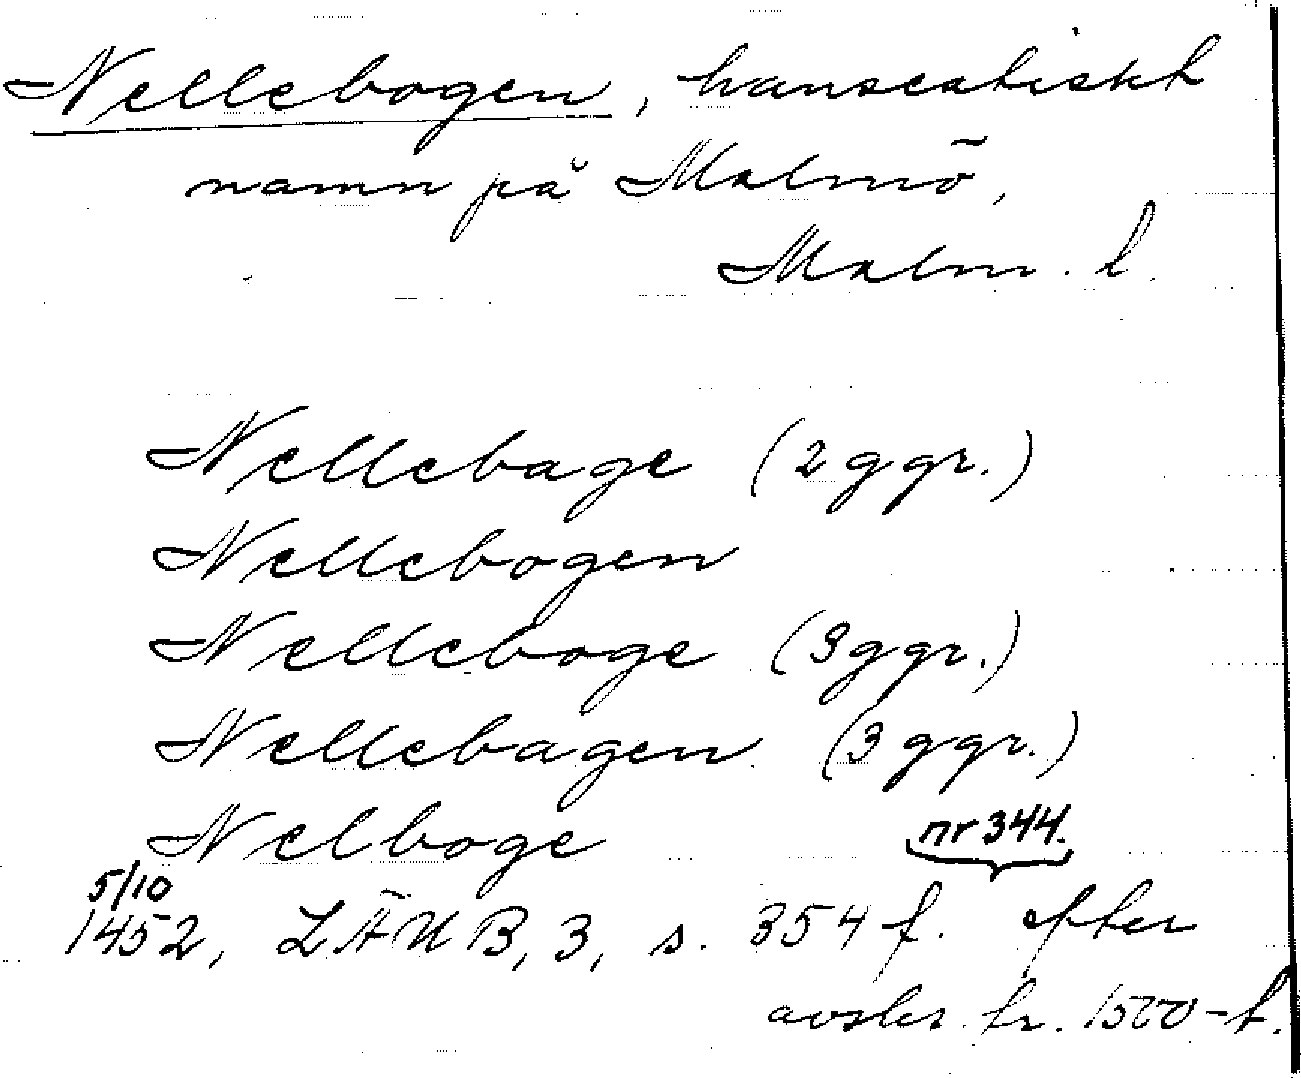 Nellebogen, hanseatiskt
namn på Malmö,
Malm. l.
Nellebage (2 ggr.)
Nellebogen
Nelleboge (3 ggr.)
Nellebagen (3 ggr.)
Nelboge
nr 344.
5/10
1452, LÄUB, 3, s. 354 f. efter
avskr. fr. 1500-t.